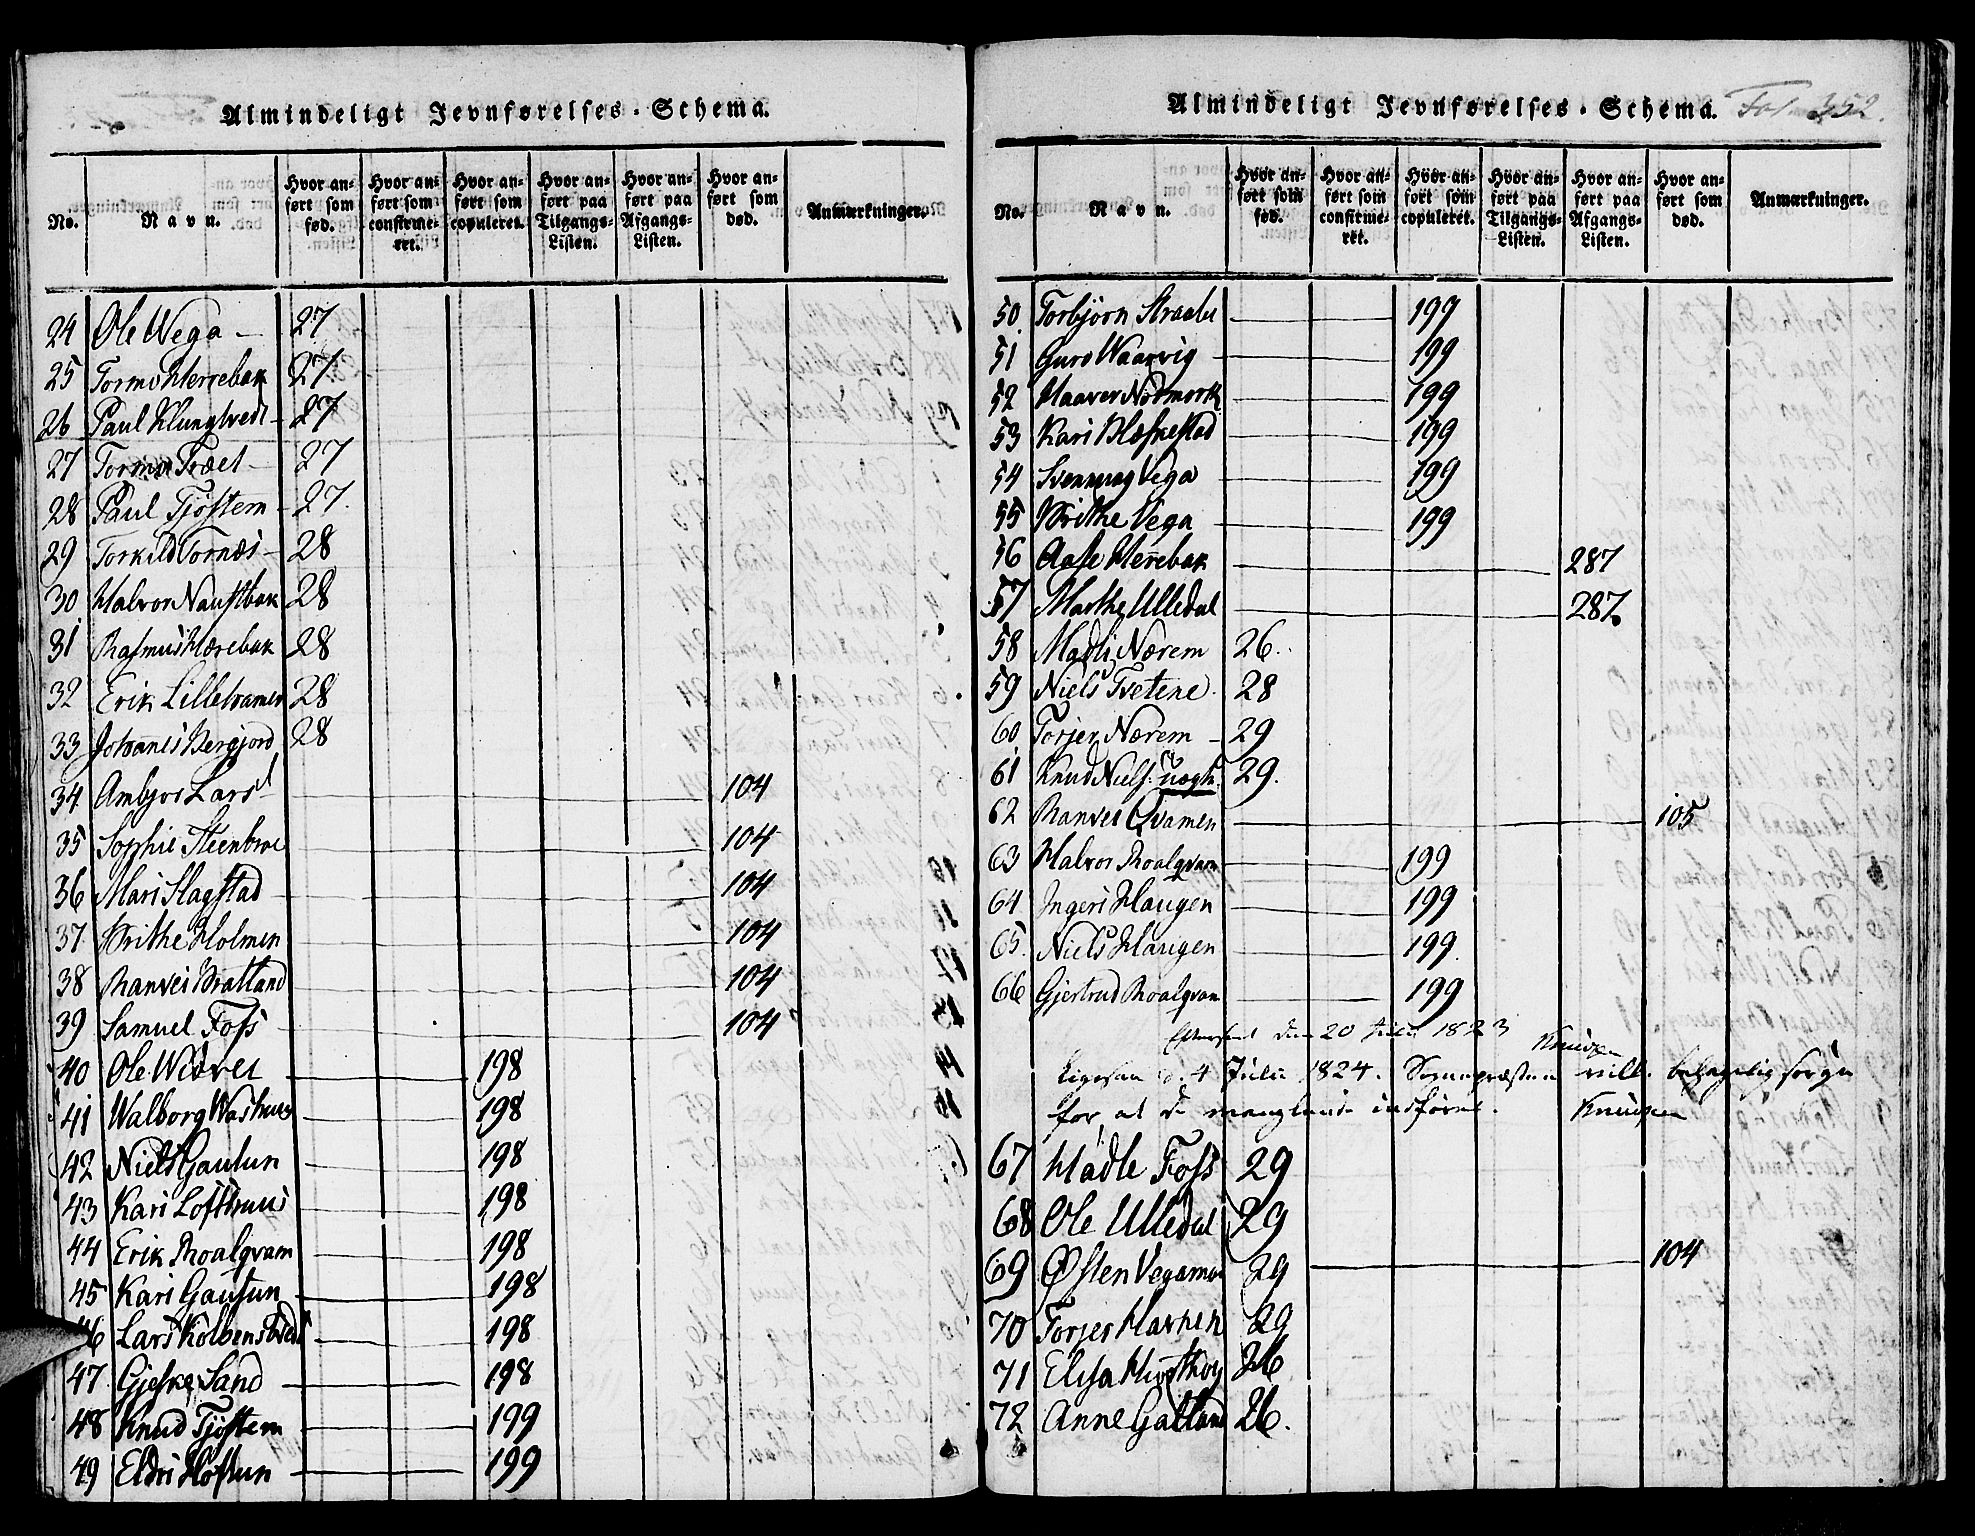 Almindeligt Jevnførelses-Schema.
No. Navn. Hvor anført som fød. Hvor anført som confirmeret. Hvor anført som copuleret. Hvor anført paa Tilgangs-Listen. Hvor anført paa Afgangs-Listen. Hvor anført som død. Anmærkninger.
24 Ole Wega 27
25 Tormo Herrebak 27
26 Paul Klungtvedt 27
27 Tormo Træet 27
28 Paul Tjøstem 27.
29 Torkild Tornæs 28
30 Halvor Naustbak 28
31 Rasmus Hærebak 28
32 Erik Lilletvamen 28
33 Johanes Bergjord 28
34 Ambjor Larsd 104
35 Sophie Steenbroe 104
36 Mari Slagstad 104
37 Brithe Holmen 104
38 Ranvei Bratland 104
39 Samuel Foss 104
40 Ole Widvei 198
41 Walborg Washuus 198
42 Niels Gausun 198
43 Kari Lofthuus 198
44 Erik Roalqvam 198
45 Kari Gausun 198
46 Lars Kolbenstvedt 198
47 Gjeske Sand 198
48 Knud Tjøstem 199
49 Eldri Høfsun 199
Almindeligt Jevnførelses-Schema. Fol. 352.
No. Navn. Hvor anført som fød. Hvor anført som confirmeret. Hvor anført som copuleret. Hvor anført paa Tilgangs-Listen. Hvor anført paa Afgangs-Listen. Hvor anført som død. Anmærkninger.
50 Torbjørn Straabe 199
51 Guro Waarvig 199
52 Haaver Nordmork 199
53 Kari Blæsnestad 199
54 Svennung Vega 199
55 Brithe Vega 199
56 Aase Herrebak 287
57 Marthe Ulledal 287
58 Madli Nærem 26.
59 Niels Tvetene 28
60 Torjer Nærem 29
61 Knud Niels. uægte 29.
62 Ranvei Qvamen 105
63 Halvor Roalqvam 199
64 Ingeri Haugen 199
65. Niels Haugen 199.
66 Gjertrud Roalqvam 199
Efterseet den 20 Julii 1823
Knudzen
Ligesaa d. 4 Julii 1824. Sognepræsten vill behagelig sørge
for at de manglende indføres. Knudzen
67 Madle Foss 29
68 Ole Ulledal 29
69 Østen Vegamoe 29 104
70 Torjer Havnen 29
71 Elisa Murthoy 26
72 Anne Gatland 26.